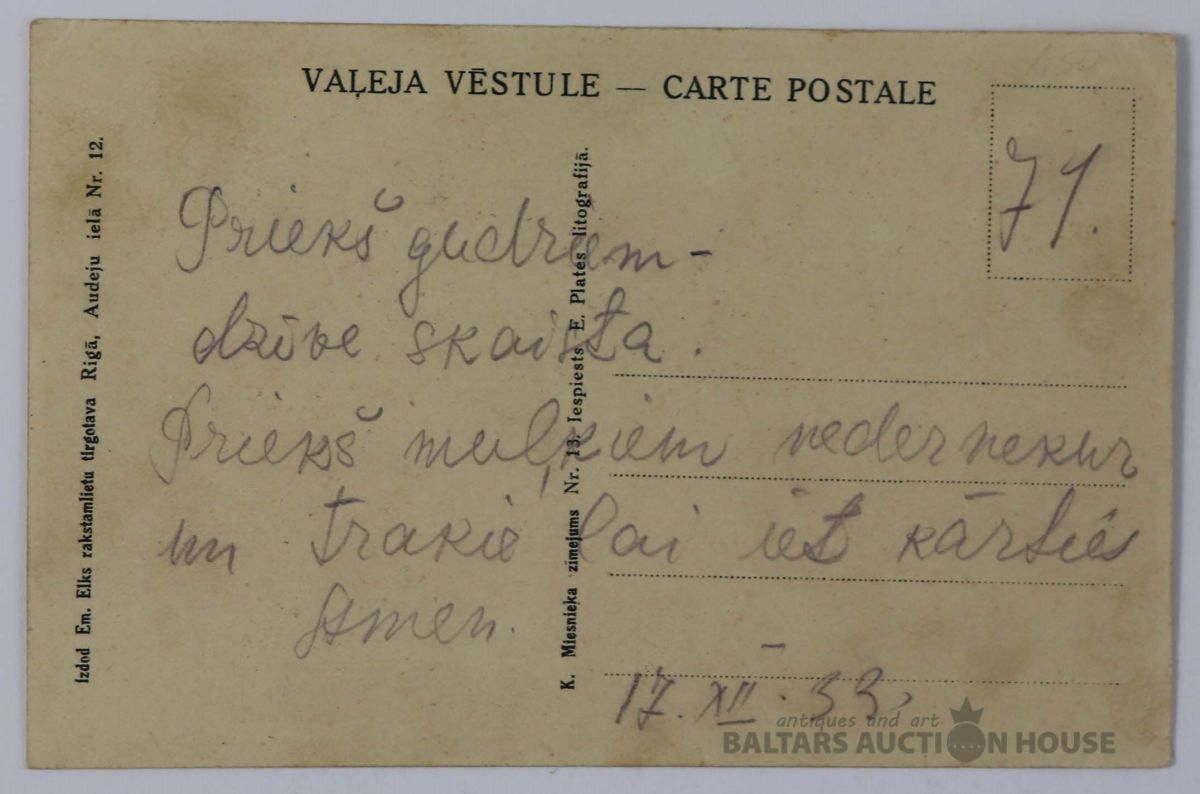 VAĻEJA VĒSTULE — CARTE POSTALE
71.
Izdod Em. Elks rakstamlietu tirgotava Rigā, Audeju ielā Nr. 12.
K. Miesnieķa zimejums Nr. 13. Iespiests E. Plates litografijā.
Priekš gudriem –
dzīve skaista.
Priekš muļķiem neder nekur
un trakie lai iet kārties
Amen.
17. XII. 33.
antiques and art
BALTARS AUCTION HOUSE